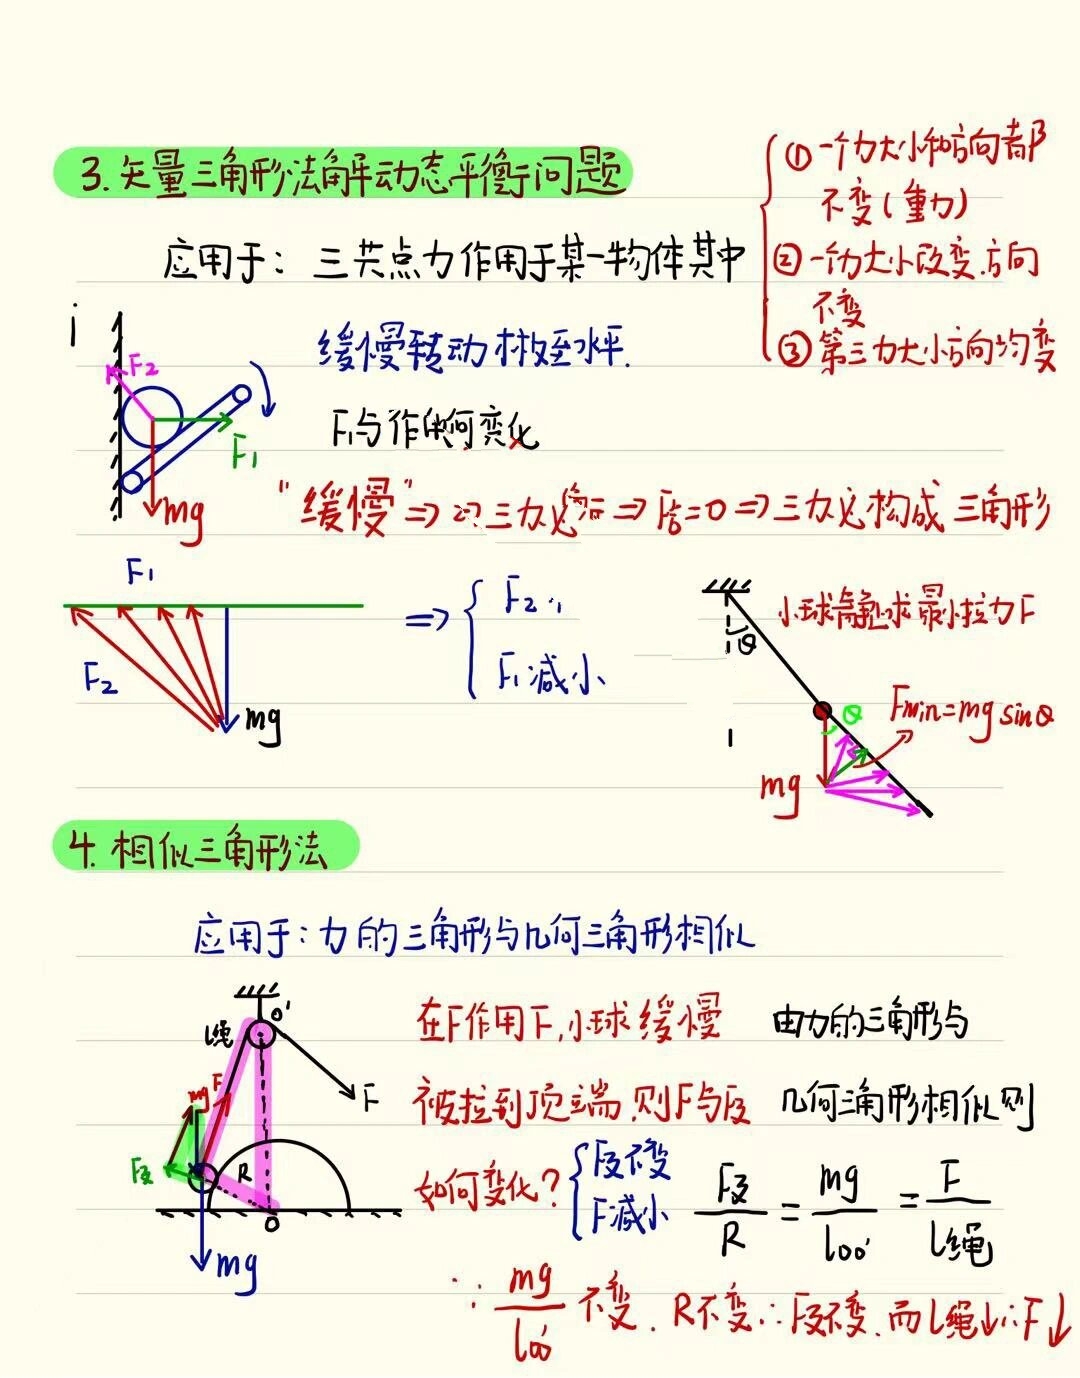 3. 矢量三角形法解动态平衡问题
① 一个力大小和方向都
不变(重力)
应用于: 三共点力作用于某一物体其中
② 一个力大小改变.方向
不变
③ 第三力大小方向均变
缓慢转动 至水平.
F₂
F₁
mg
F₁与 何变化
"缓慢" ⇒ 三力 ⇒ F合=0 ⇒ 三力必构成三角形
F₁
F₂
mg
⇒ { F₂
F₁减小
小球静止求最小拉力F
θ
θ
Fmin=mg sinθ
mg
4. 相似三角形法
应用于: 力的三角形与几何三角形相似
O'
l绳
F
F
mg
F支
R
O
mg
在F作用下,小球缓慢
被拉到顶端.则F与F支
如何变化? { F支不变
F减小
由力的三角形与
几何三角形相似则
F支/R = mg/loo' = F/l绳
∵ mg/loo' 不变. R不变∴F支不变.而l绳↓∴F↓